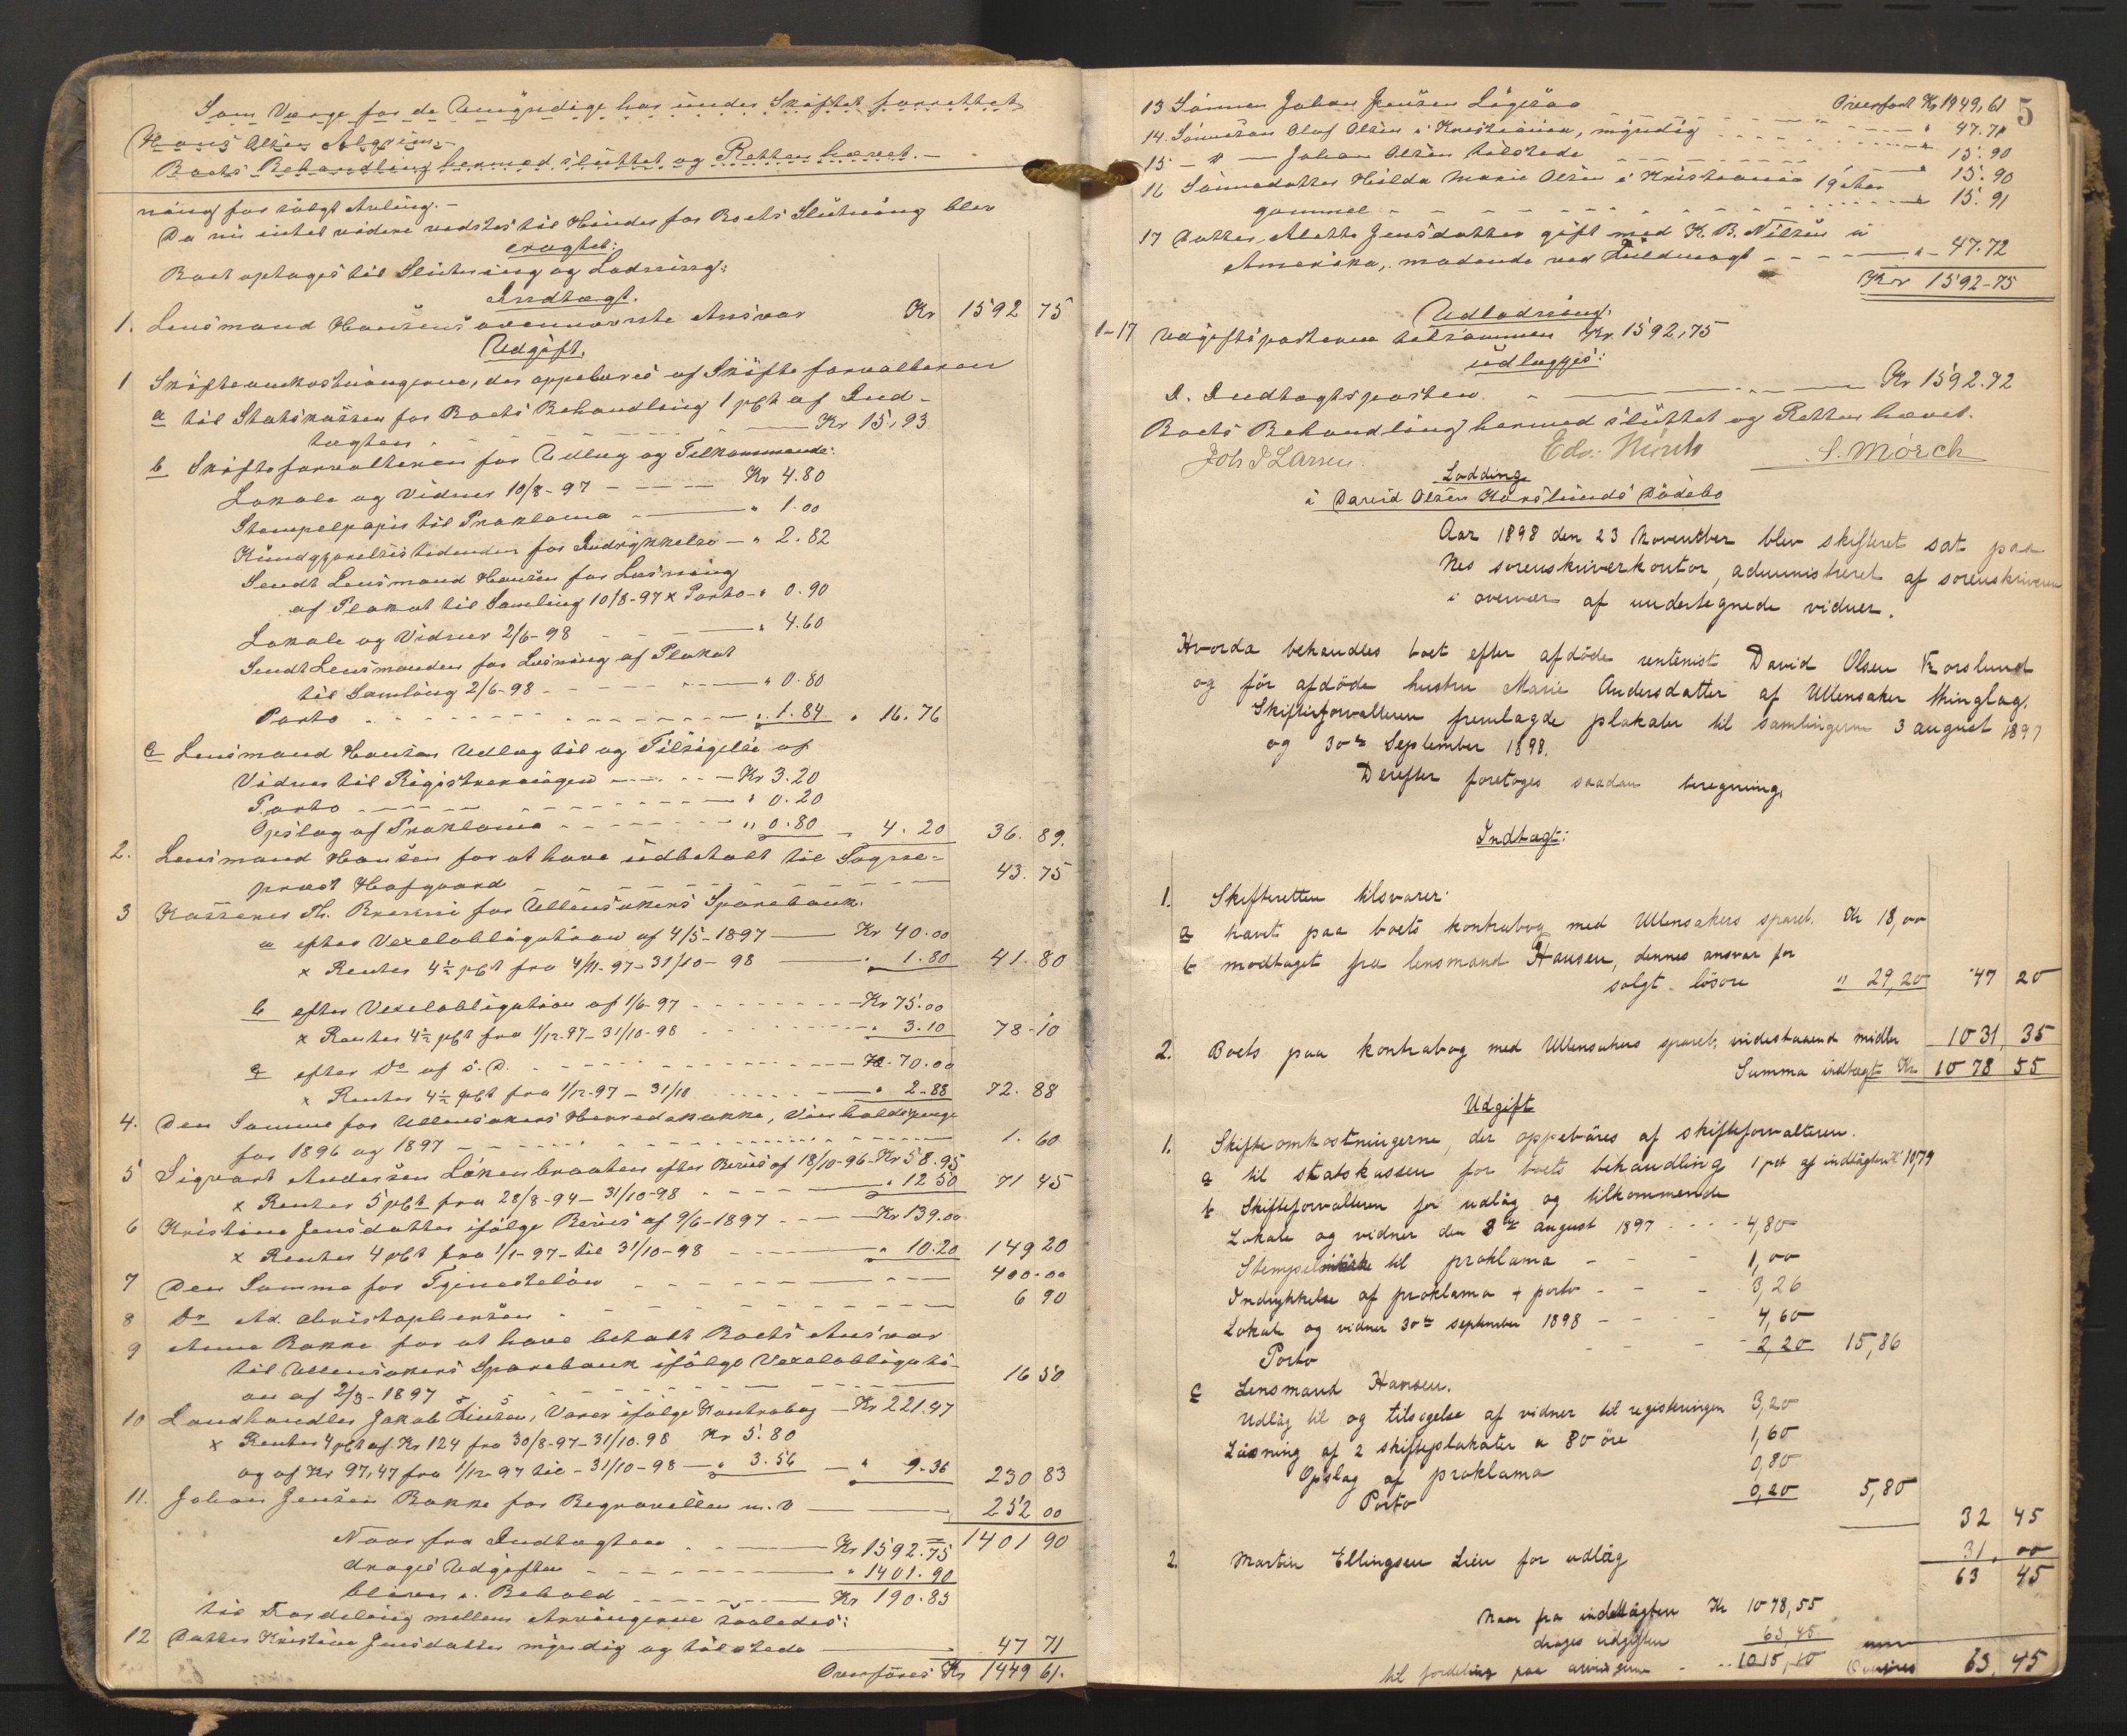 Som Værge for de Umyndige har under Skiftet forrettet
Hans Olsen Algrim.
Boets Behandling hermed sluttet og Retten hævet. -
ning for solgt Avling. -
Da nu intet videre vidstes til Hinder for Boets Slutning blev
eragtet:
Boet optages til Slutning og Lodning:
Indtægt.
1. Lensmand Hansens ovennævnte Ansvar Kr 1592 75
Udgift.
1 Skifteomkostningerne, der oppebæres af Skifteforvalteren
a til Statskassen for Boets Behandling 1 pCt af Ind-
tægten Kr 15,93
b Skifteforvalteren for Udlæg og Tilkommende:
Lokale og Vidner 10/8-97 Kr 4.80
Stempelpapir til Proklama " 1.00
Kundgjørelsestidenden for Indrykkelse " 2.82
Sendt Lensmand Hansen for Læsning
af Plakat til Samling 10/8-97 x Porto " 0.90
Lokale og Vidner 2/6-98 " 4.60
Sendt Lensmanden for Læsning af Plakat
til Samling 2/6-98 " 0.80
Porto " 1.84 " 16.76
c Lensmand Hansen Udlæg til og Tilsigelse af
Vidner til Registreringen Kr 3.20
Porto " 0.20
Opslag af Proklama " 0.80 4.20 36.89.
2. Lensmand Hansen for at have udbetalt til Sogne-
præst Hofgaard 43.75
3 Kasserer Th. for Ullensakers Sparebank.
a efter Vexelobligation af 4/5-1897 Kr 40.00
x Renter 4½ pCt fra 4/11-97-31/10-98 " 1.80 41.80
b efter Vexelobligation af 1/6-97 Kr 75.00
x Renter 4½ pCt fra 1/12-97-31/10-98 " 3.10 78-10
c efter Do af s. D. Kr. 70.00
x Renter 4½ pCt fra 1/12-97-31/10 " 2-88 72.88
4. Den Samme for Ullensakers Herredskasse,
for 1896 og 1897 1.60
5 Sigvart Andersen Løkenbraaten efter Bevis af 18/10-96 Kr 58.95
x Renter 5 pCt fra 28/8-94-31/10-98 " 12 50 71 45
6 Kristine Jensdatter ifølge Bevis af 9/6-1897 Kr 139.00
x Renter 4 pCt fra 1/1-97-til 31/10-98 " 10.20 149 20
7 Den Samme for Tjenesteløn 400.00
8 Dr Ad. Christophersen 6 90
9 Anne Bakke for at have betalt Boets Ansvar
til Ullensakers Sparebank ifølge Vexelobligati-
on af 2/3-1897 16 50
10 Landhandler Jakob Jensen, Varer ifølge Kontrabog Kr 221.47
x Renter 4 pCt af Kr 124 fra 30/8-97-31/10.98 Kr 5.80
og af Kr 97,47 fra 1/12-97 til - 31/10-98 " 3.56 " 9.36 230 83
11. Johan Jensen Bakke for Begravelsen m.v 252 00
1401 90
Naar fra Indtægten Kr 1592.75
drages Udgiften " 1401.90
bliver i Behold Kr 190.85
til Fordeling mellem Arvingerne saaledes:
12 Datter Kristine Jensdatter myndig og tilstede 47 71
Overføres Kr 1449 61.
5
Overført Kr 1949,61
13 Sønnen Johan Jensen Lögeraa " 47.71
14. Sønnesøn Olaf Olsen i Kristiania, myndig " 15.90
15 - " - Johan Olsen tilstede " 15.90
16 Sønnedatter Hilda Marie Olsen i Kristiania 19 Aar
gammel " 15.91
17 Datter Alette Jensdatter gift med K. B. Nilsen i
Amerika, mødende ved Fuldmagt " 47.72
Kr 1592-75
Udlodning.
1-17 Udgiftsposterne tilsammen Kr 1592,75
udlægges:
I. Indtægtsposten Kr 1592.72
Boets Behandling hermed sluttet og Retten hævet.
Joh J Larsen. Edv. S. Mörch
Lodding
i David Olsen Korslunds Dödsbo
Aar 1898 den 23 November blev skifteret sat paa
Nes sorenskriverkontor, administreret af sorenskriveren
i overvær af undertegnede vidner.
Hvorda behandles boet efter afdöde rentenist David Olsen Korslund
og för afdöde hustru Marie Andersdatter af Ullensaker thinglag.
Skifteforvalteren fremlagde plakater til samlingerne 3 august 1897
og 30te September 1898.
Derefter foretoges saadan beregning,
Indtægt:
1. Skifteretten tilsvarer:
a hævet paa boets kontrabog med Ullensakers spareb. Kr 18,00
b modtaget fra lensmand Hansen, dennes ansvar for
solgt lösöre " 29,20 47 20
2. Boets paa kontrabog med Ullensakers spareb. indestaaende midler 1031,35
Summa indtægt Kr. 1078 55
Udgift
1. Skifteomkostningerne, der oppebäres af skifteforvalteren.
a til statskassen for boets behandling 1 pct af indtägten Kr 10,79
b Skifteforvalteren for udläg og tilkommende
Lokale og vidner den 3die august 1897 4,80
til proklama 1,00
Indrykkelse af proklama + porto 3,26
Lokale og vidner 30te september 1898 4,60
Porto 2,20 15,86
c Lensmand Hansen.
Udläg til og tilsigelse af vidner til registreringen 3,20
Läsning af 2 skifteplakater a 80 öre 1,60
Opslag af proklama 0,80
Porto 0,20 5,80
32 45
2. Martin Ellingsen Lien for udläg 31,00
63 45
Naar fra indtägten Kr 1078,55
drages udgiften 63,45
til fordeling paa arvingerne 1015,10 Overføres 63,45